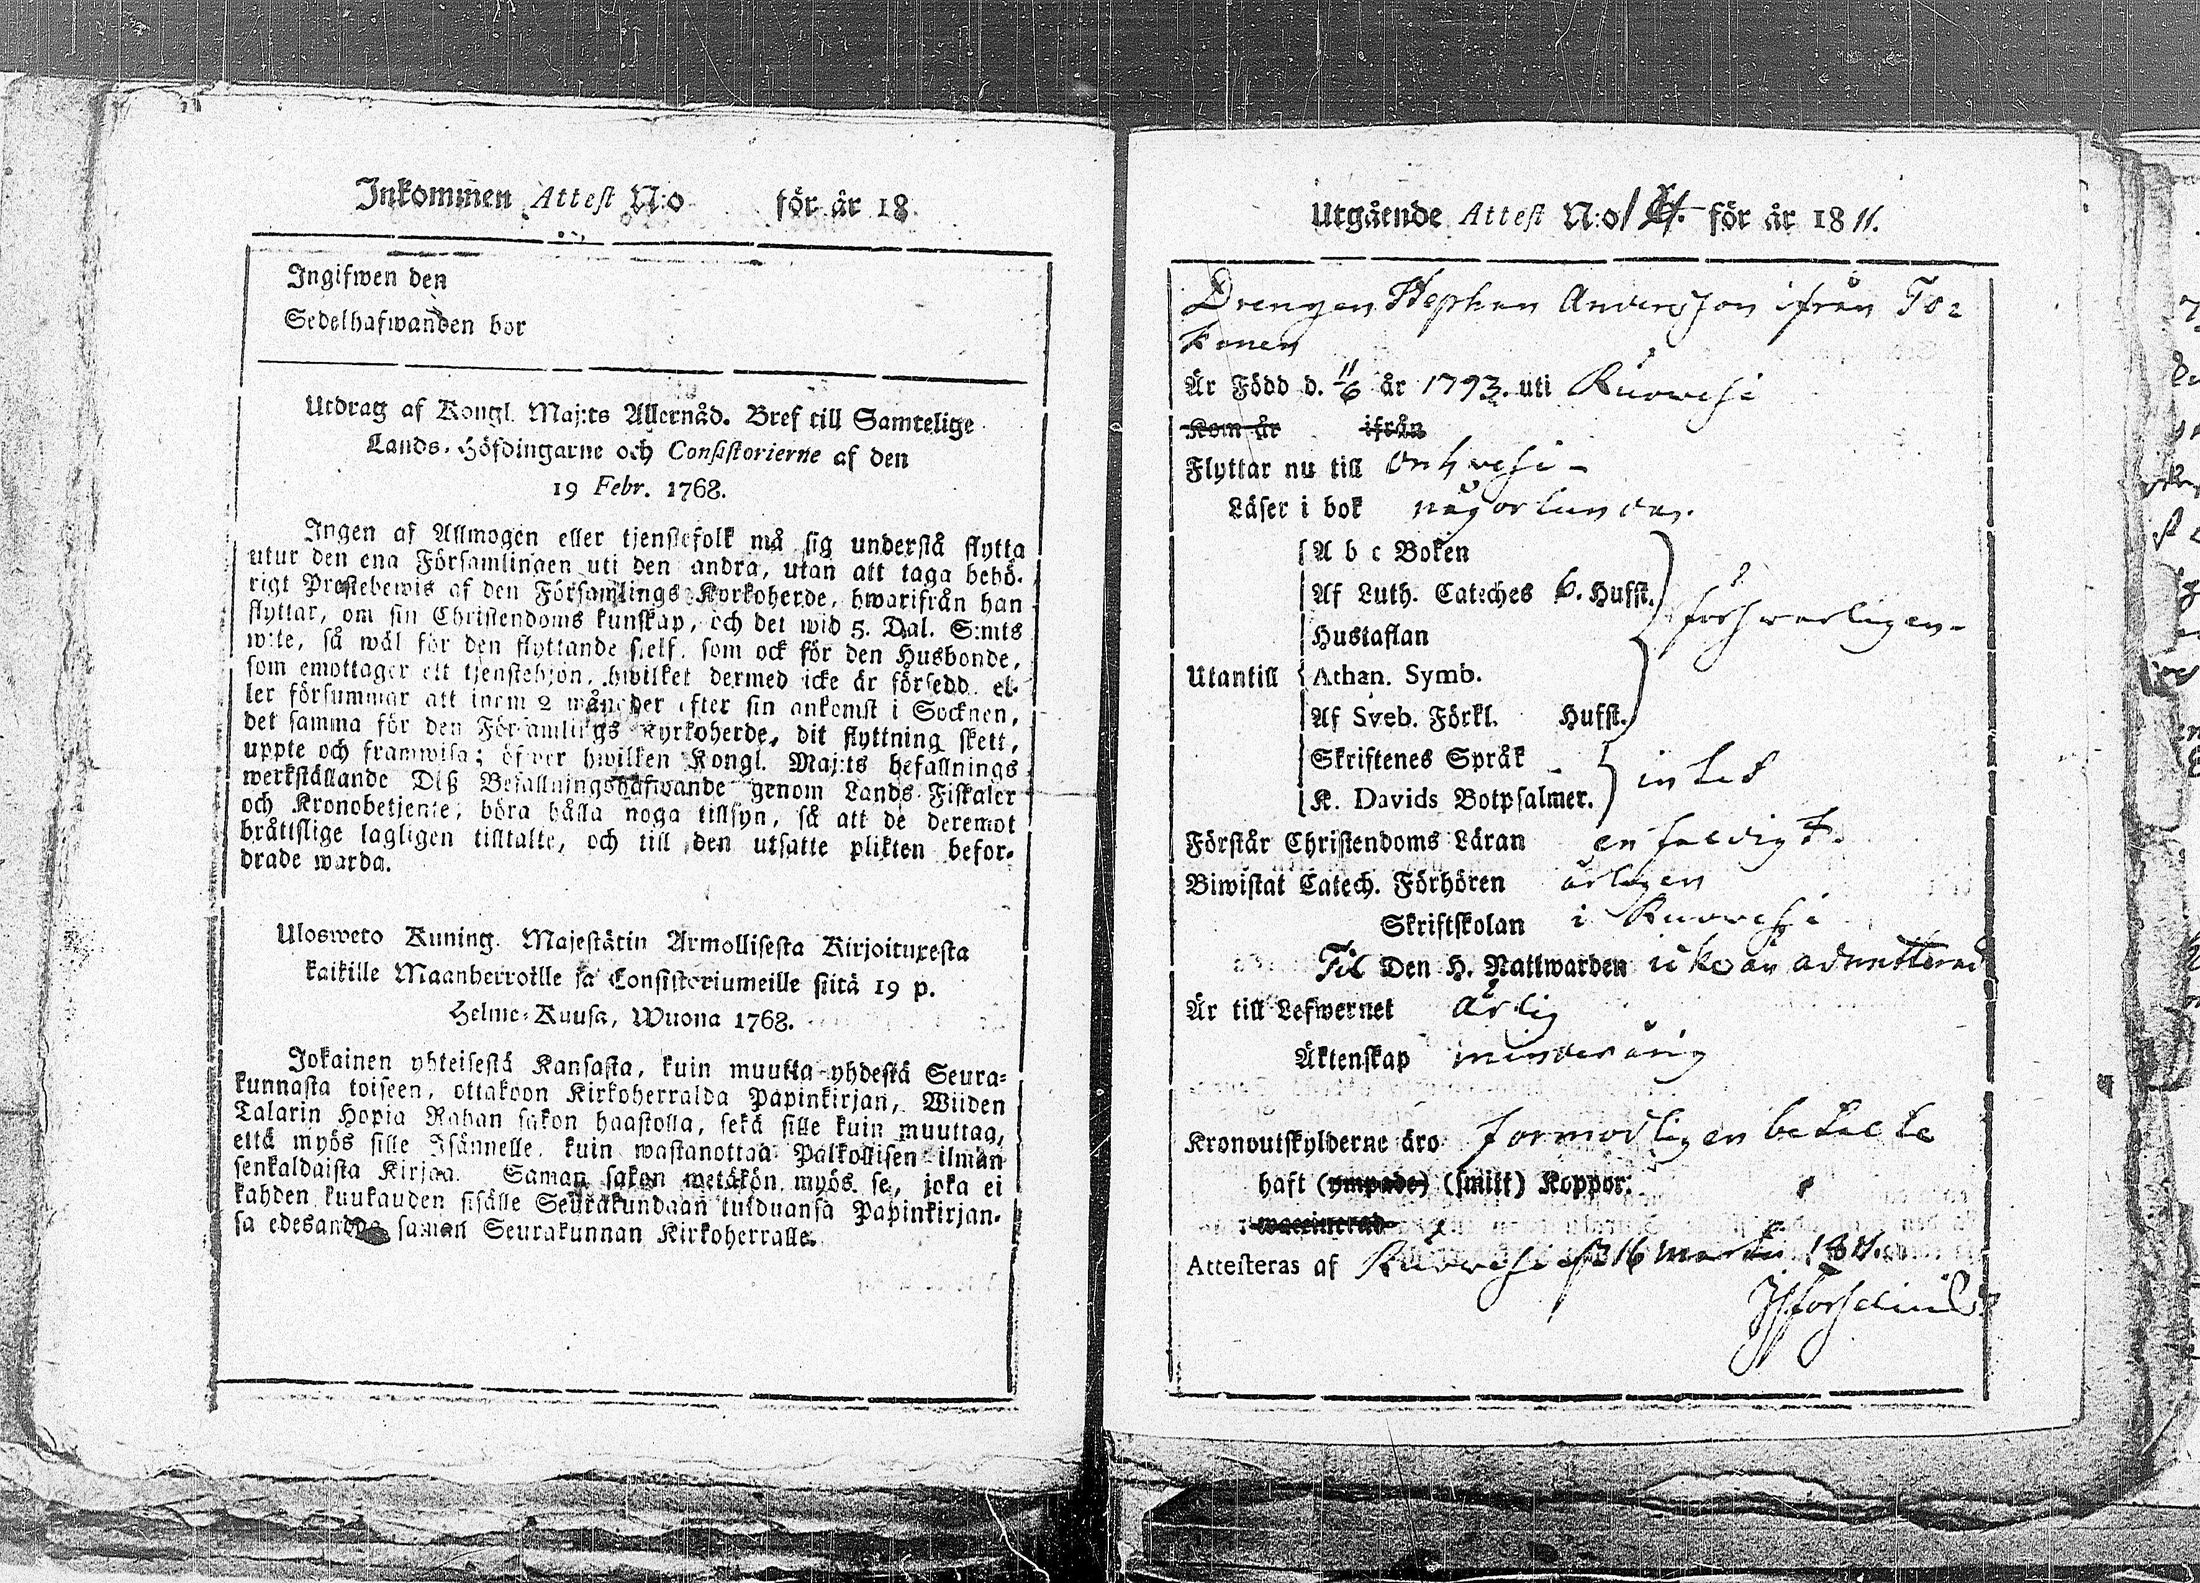 Inkommen Attest N:o för år 18
Ingifwen den
Sedelhafwanden bor
Utdrag af Kongl. Maj:ts Allernåd. Bref till Samtelige
Lands-Höfdingarne och Consistorierne af den
19 Febr. 1768.
Ingen af Allmogen eller tjenstefolk må sig understå flytta
utur den ena Församlingen uti den andra, utan att taga behö-
rigt Prestebewis af den Församlings Kyrkoherde, hwarifrån han
flyttar, om sin Christendoms kunskap, och det wid 5. Dal. S:mts
wite, så wäl för den flyttande sielf, som ock för den Husbonde,
som emottager ett tjenstehjon, hwilket dermed icke är försedd, el-
ler försummar att inom 2 månader efter sin ankomst i Socknen,
det samma för den Församlings Kyrkoherde, dit flyttning skett,
uppte och framwisa; öfwer hwilken Kongl. Maj:ts befallnings
werkställande Dess Befallningshafwande genom Lands Fiskaler
och Kronobetjente, böra hålla noga tillsyn, så att de deremot
bråttslige lagligen tilltalte, och till den utsatte plikten befor-
drade warda.
Ulosweto Kuning. Majestätin Armollisesta Kirjoituxesta
kaikille Maanherroille ja Consistoriumeille siitä 19 p.
Helme-Kuusa, Wuona 1768.
Jokainen yhteisestä Kansasta, kuin muutta yhdestä Seura-
kunnasta toiseen, ottakoon Kirkoherralda Papinkirjan, Wiiden
Talarin Hopia Rahan sakon haastolla, sekä sille kuin muuttaa,
että myös sille Isännelle, kuin wastanottaa Palkollisen ilman
senkaldaista Kirjaa. Saman sakon wetäkön myös se, joka ei
kahden kuukauden sisälle Seurakundaan tulduansa Papinkirjan-
sa edesanda saman Seurakunnan Kirkoherralle.
Utgående Attest N:o för år 18 11.
Drengen Stephan Andersson ifrån To-
konen
Är Född d. 11/6 år 1793. uti Ruovesi
Kom år ifrån
Flyttar nu till Orihvesi -
Läser i bok någorlunda.
A b c Boken
Af Luth. Cateches 6. Hufst.
Hustaflan försvarligen -
Utantill Athan. Symb.
Af Sveb. Förkl. Hufst.
Skriftenes Språk
K. Davids Botpsalmer. intet
Förstår Christendoms Läran enfaldigt.
Biwistat Catech. Förhören årligen
Skriftskolan i Ruovesi
Til Den H. Nattwarden icke än admitterad
Är till Lefwernet ärlig
Äktenskap minderårig
Kronoutskylderne äro förmodligen betalte
haft (ympade) (smitt) Koppor.
waccinerad
Attesteras af Ruovesi d 16 martii 1811.